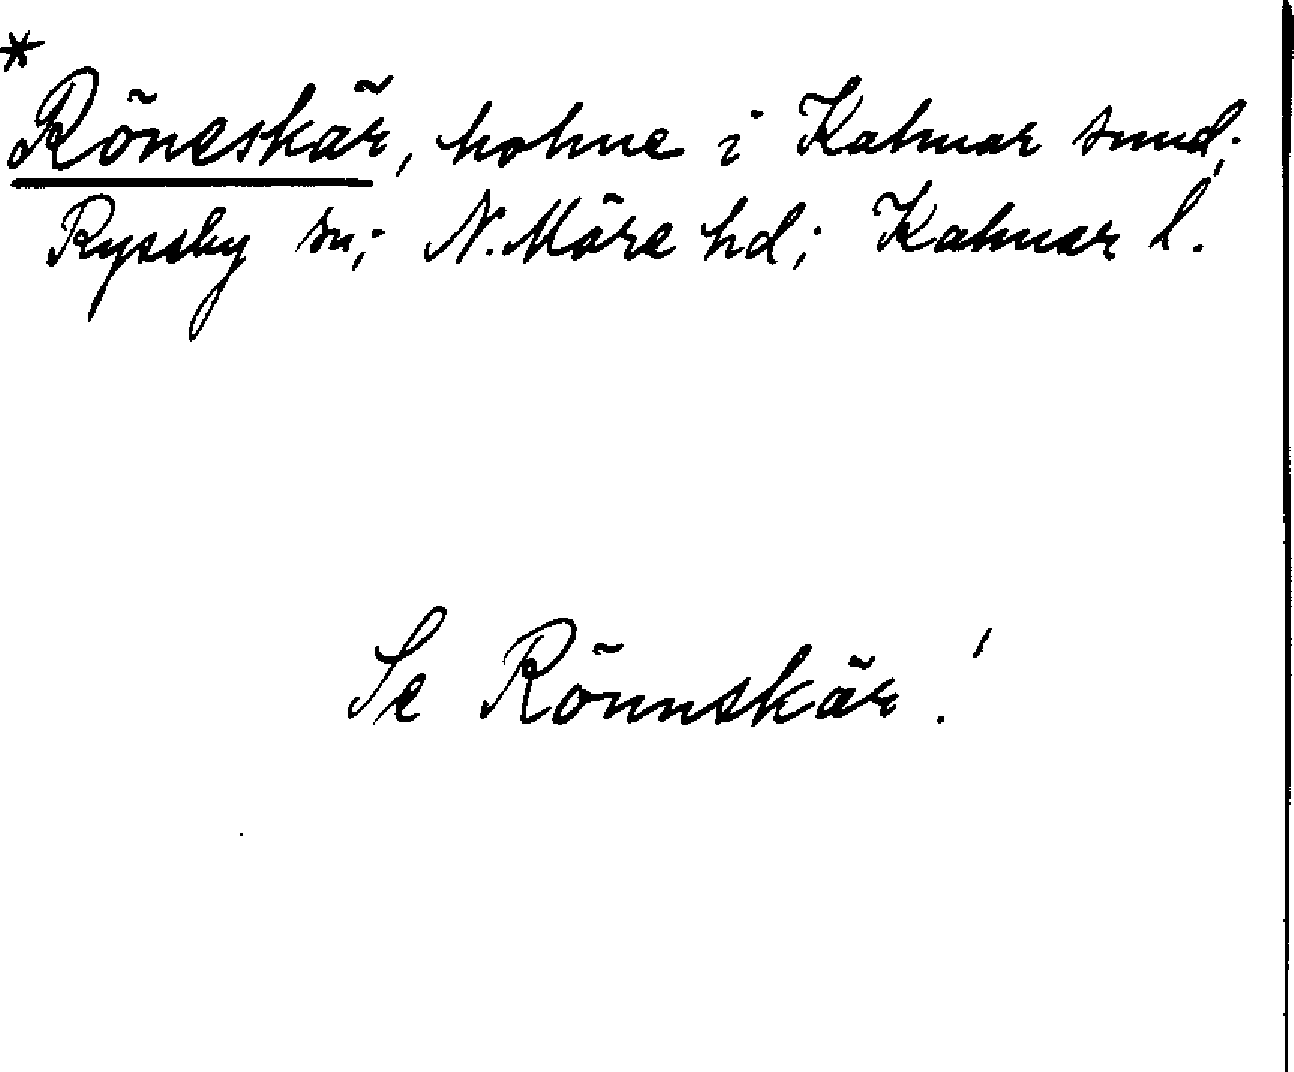 *
Röneskär, holme i Kalmar sund;
Ryssby sn; N. Möre hd; Kalmar l.
Se Rönnskär!